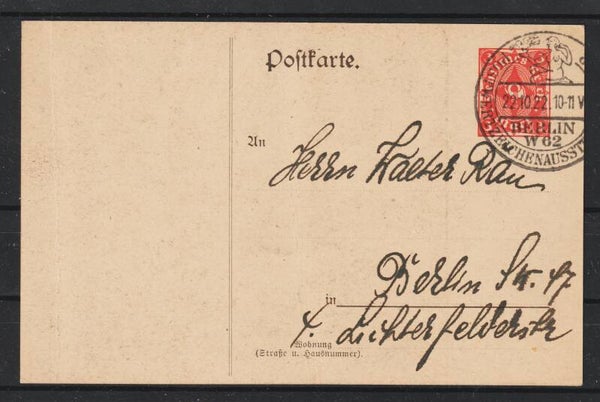 Postkarte.
22.10.22. 10-11 V
BERLIN
W 62
An
Herrn Walter Rau
in Berlin S.W. 47
4. Lichterfelderstr
Wohnung
(Straße u. Hausnummer).